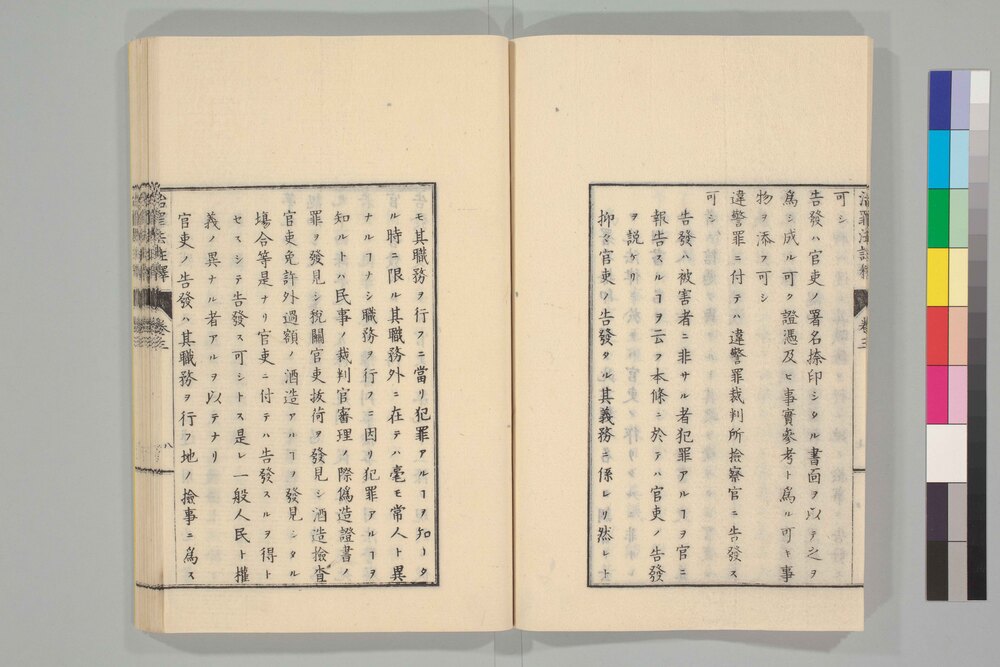 治罪法註釋 卷三
可シ
告發ハ官吏ノ署名捺印シタル書面ヲ以テ之ヲ
爲シ成ル可ク證憑及ヒ事實參考ト爲ル可キ事
物ヲ添フ可シ
違警罪ニ付テハ違警罪裁判所撿察官ニ告發ス
可シ
告發ハ被害者ニ非サル者犯罪アルヿヲ官ニ
報告スルヿヲ云フ本條ニ於テハ官吏ノ告發
ヲ說ケリ
抑々官吏ノ告發タル其義務ニ係レリ然レト
モ其職務ヲ行フニ當リ犯罪アルヿヲ知リタ
ル時ニ限ル其職務外ニ在テハ毫モ常人ト異
ナルヿナシ職務ヲ行フニ因リ犯罪アルヿヲ
知ルトハ民事ノ裁判官審理ノ際僞造證書ノ
罪ヲ發見シ稅關官吏拔荷ヲ發見シ酒造撿査
官吏免許外過額ノ酒造アルヿヲ發見シタル
塲合等是ナリ官吏ニ付テハ告發スルヲ得ト
セスシテ告發ス可シトス是レ一般人民ト權
義ノ異ナル者アルヲ以テナリ
官吏ノ告發ハ其職務ヲ行フ地ノ撿事ニ爲ス
治罪法註釋 卷三
八